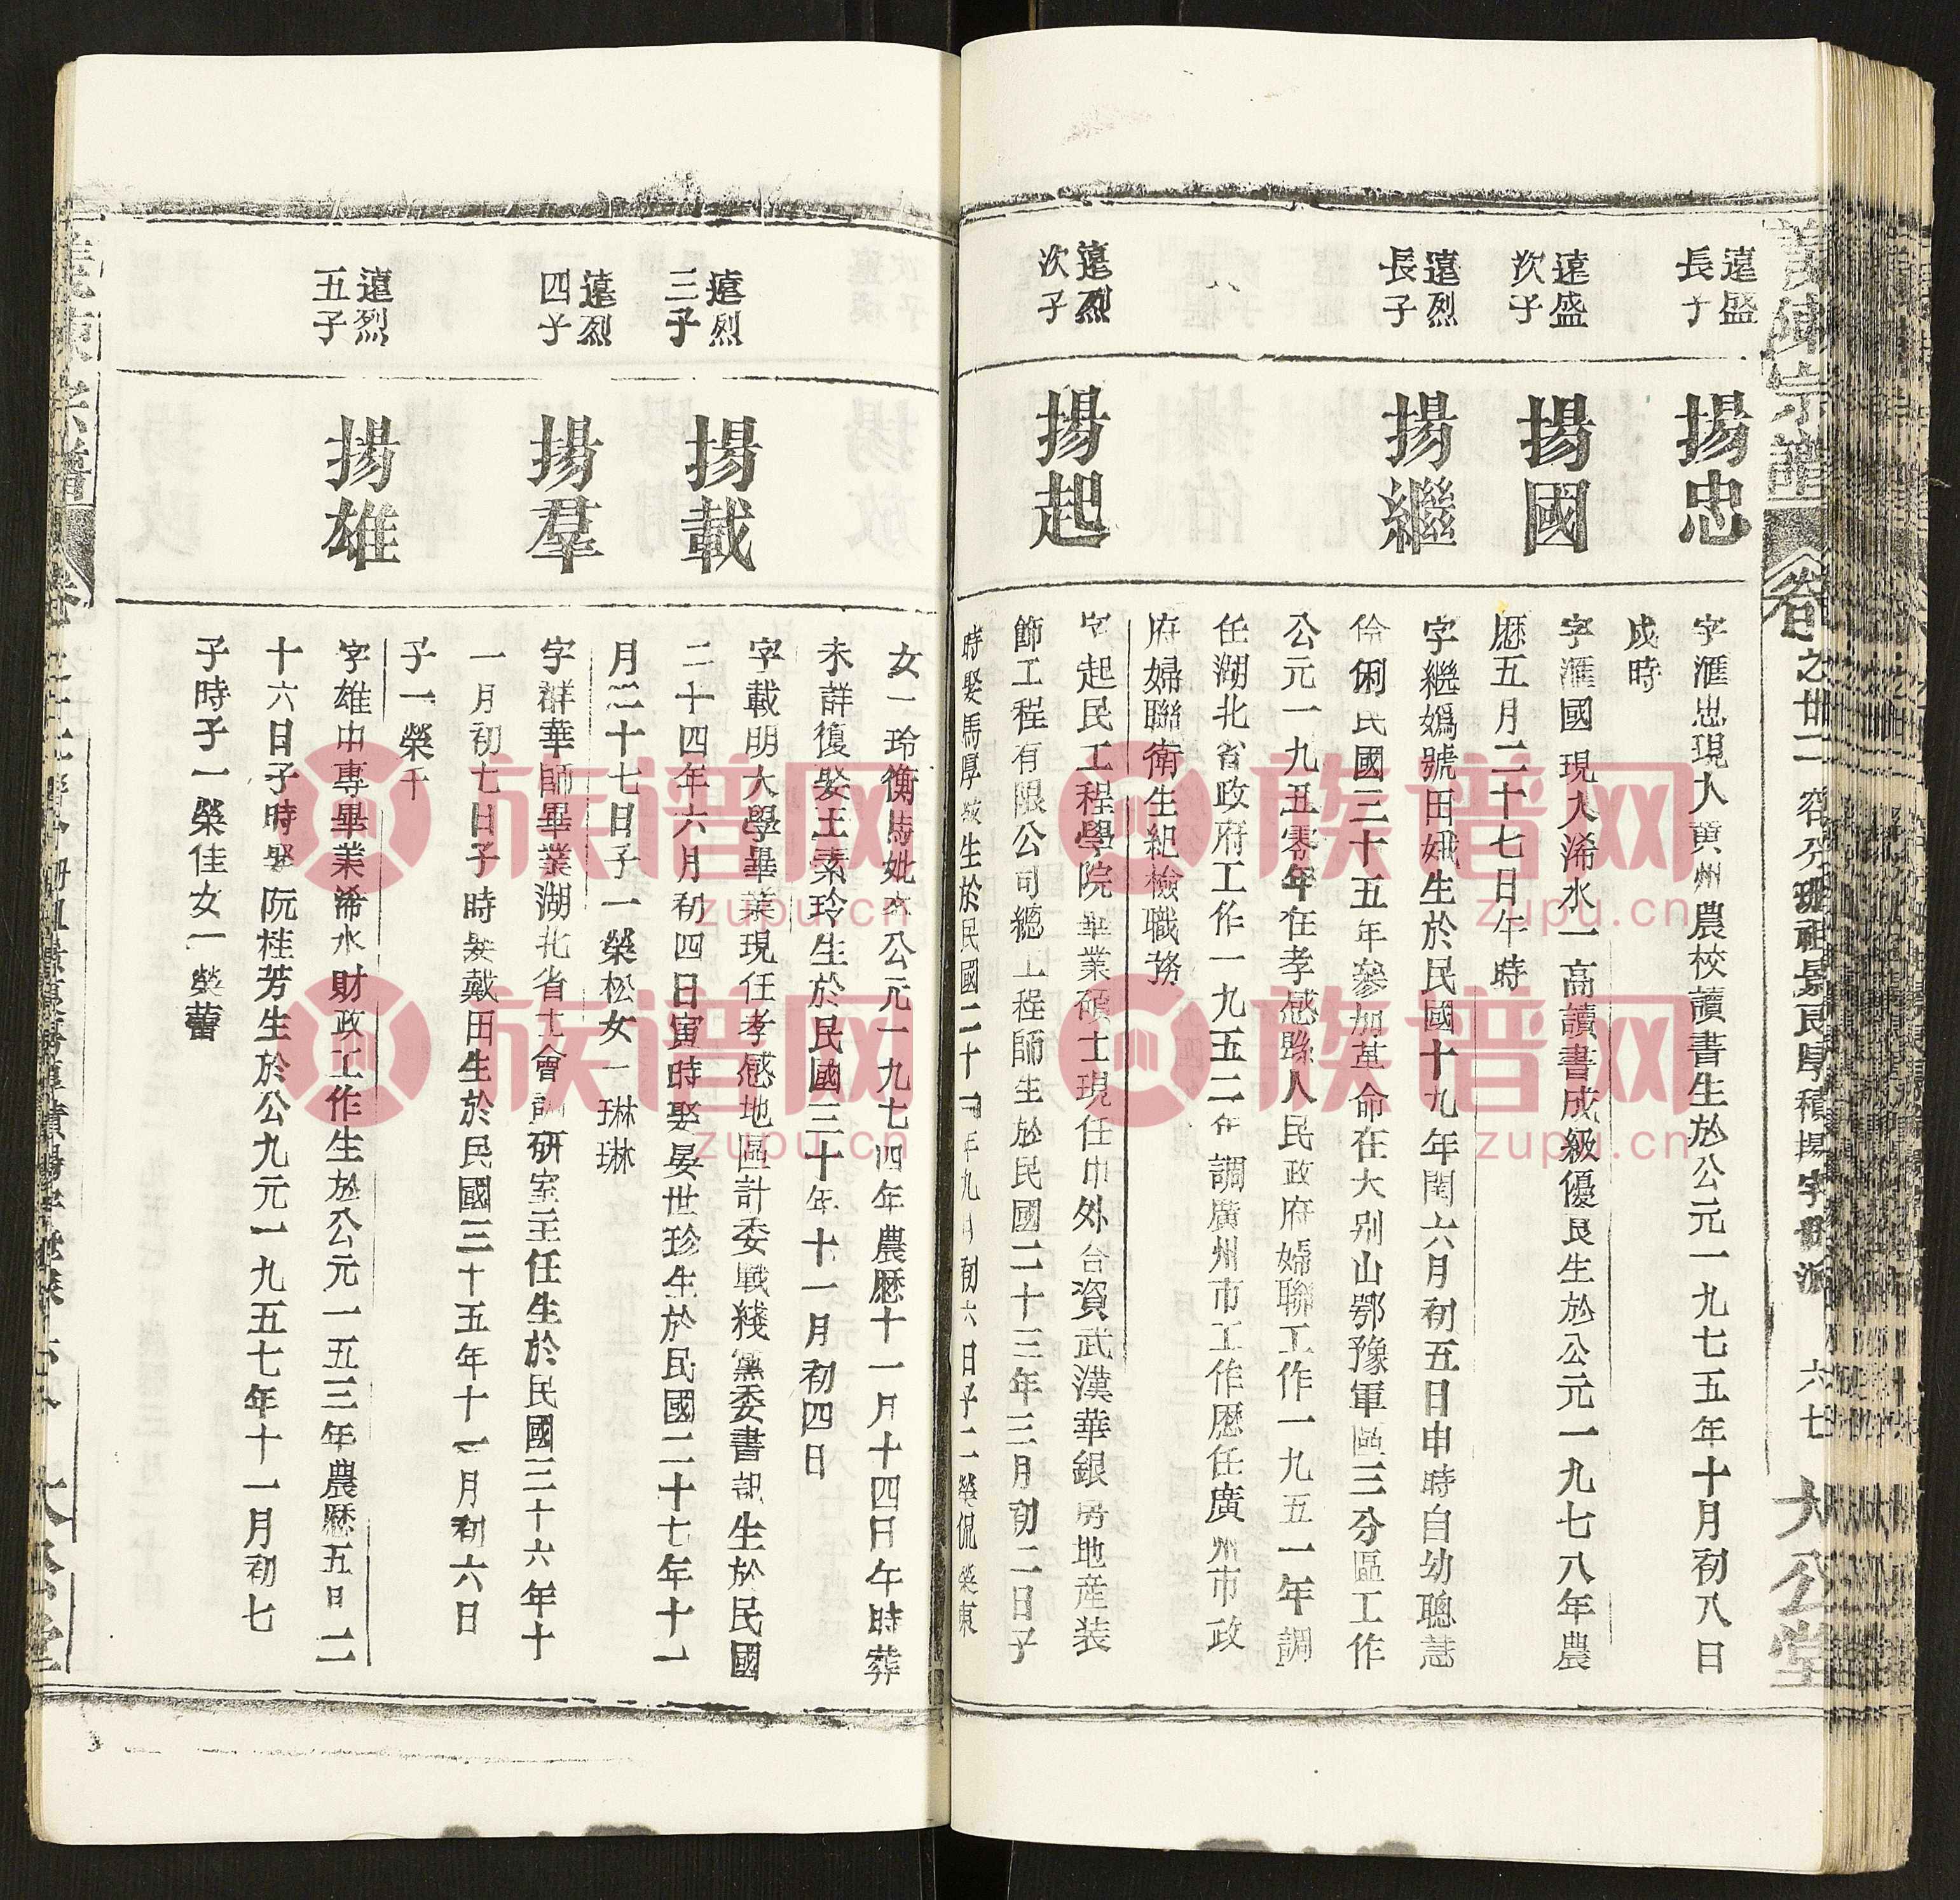 義陳宗譜
卷之廿二
六七
大公堂
遠盛
長子
揚忠
字滙忠現入黄州農校讀書生於公元一九七五年十月初八日
戍時
遠盛
次子
揚國
字滙國現入浠水一高讀書成級優良生於公元一九七八年農
歷五月二十七日午時
遠烈
長子
揚繼
字繼嬀號田娥生於民國十九年閏六月初五日申時自幼聰慧
伶俐民國三十五年參加革命在大别山鄂豫軍區三分區工作
公元一九五零年在孝感縣人民政府婦聯工作一九五一年調
任湖北省政府工作一九五二年調廣州市工作歷任廣州市政
府婦聯衛生紀檢職務
遠烈
次子
揚起
字起民工程學院畢業碩士現任中外合資武漢華銀房地産装
飾工程有限公司總工程師生於民國二十三年三月初二日子
時娶馬厚 生於民國二十 年九月初六日子二榮侃榮東
女一玲衡馬妣 公元一九七四年農歷十一月十四日午時葬
未詳復娶王素玲生於民國三十年十一月初四日
遠烈
三子
揚載
字載明大學畢業現任孝感地區計委戰綫黨委書記生於民國
二十四年六月初四日寅時娶晏世珍生於民國二十七年十一
月二十七日子一榮松女一琳琳
遠烈
四子
揚羣
字群華師畢業湖北省 會調研室主任生於民國三十六年十
一月初七日子時娶戴田生於民國三十五年十一月初六日
子一榮千
遠烈
五子
揚雄
字雄中專畢業浠水財政工作生於公元一五三年農歷五日二
十六日子時娶阮桂芳生於公九元一九五七年十一月初七
子時子一榮佳女一榮蕾
族谱网
zupu.cn
族谱网
zupu.cn
族谱网
zupu.cn
族谱网
zupu.cn